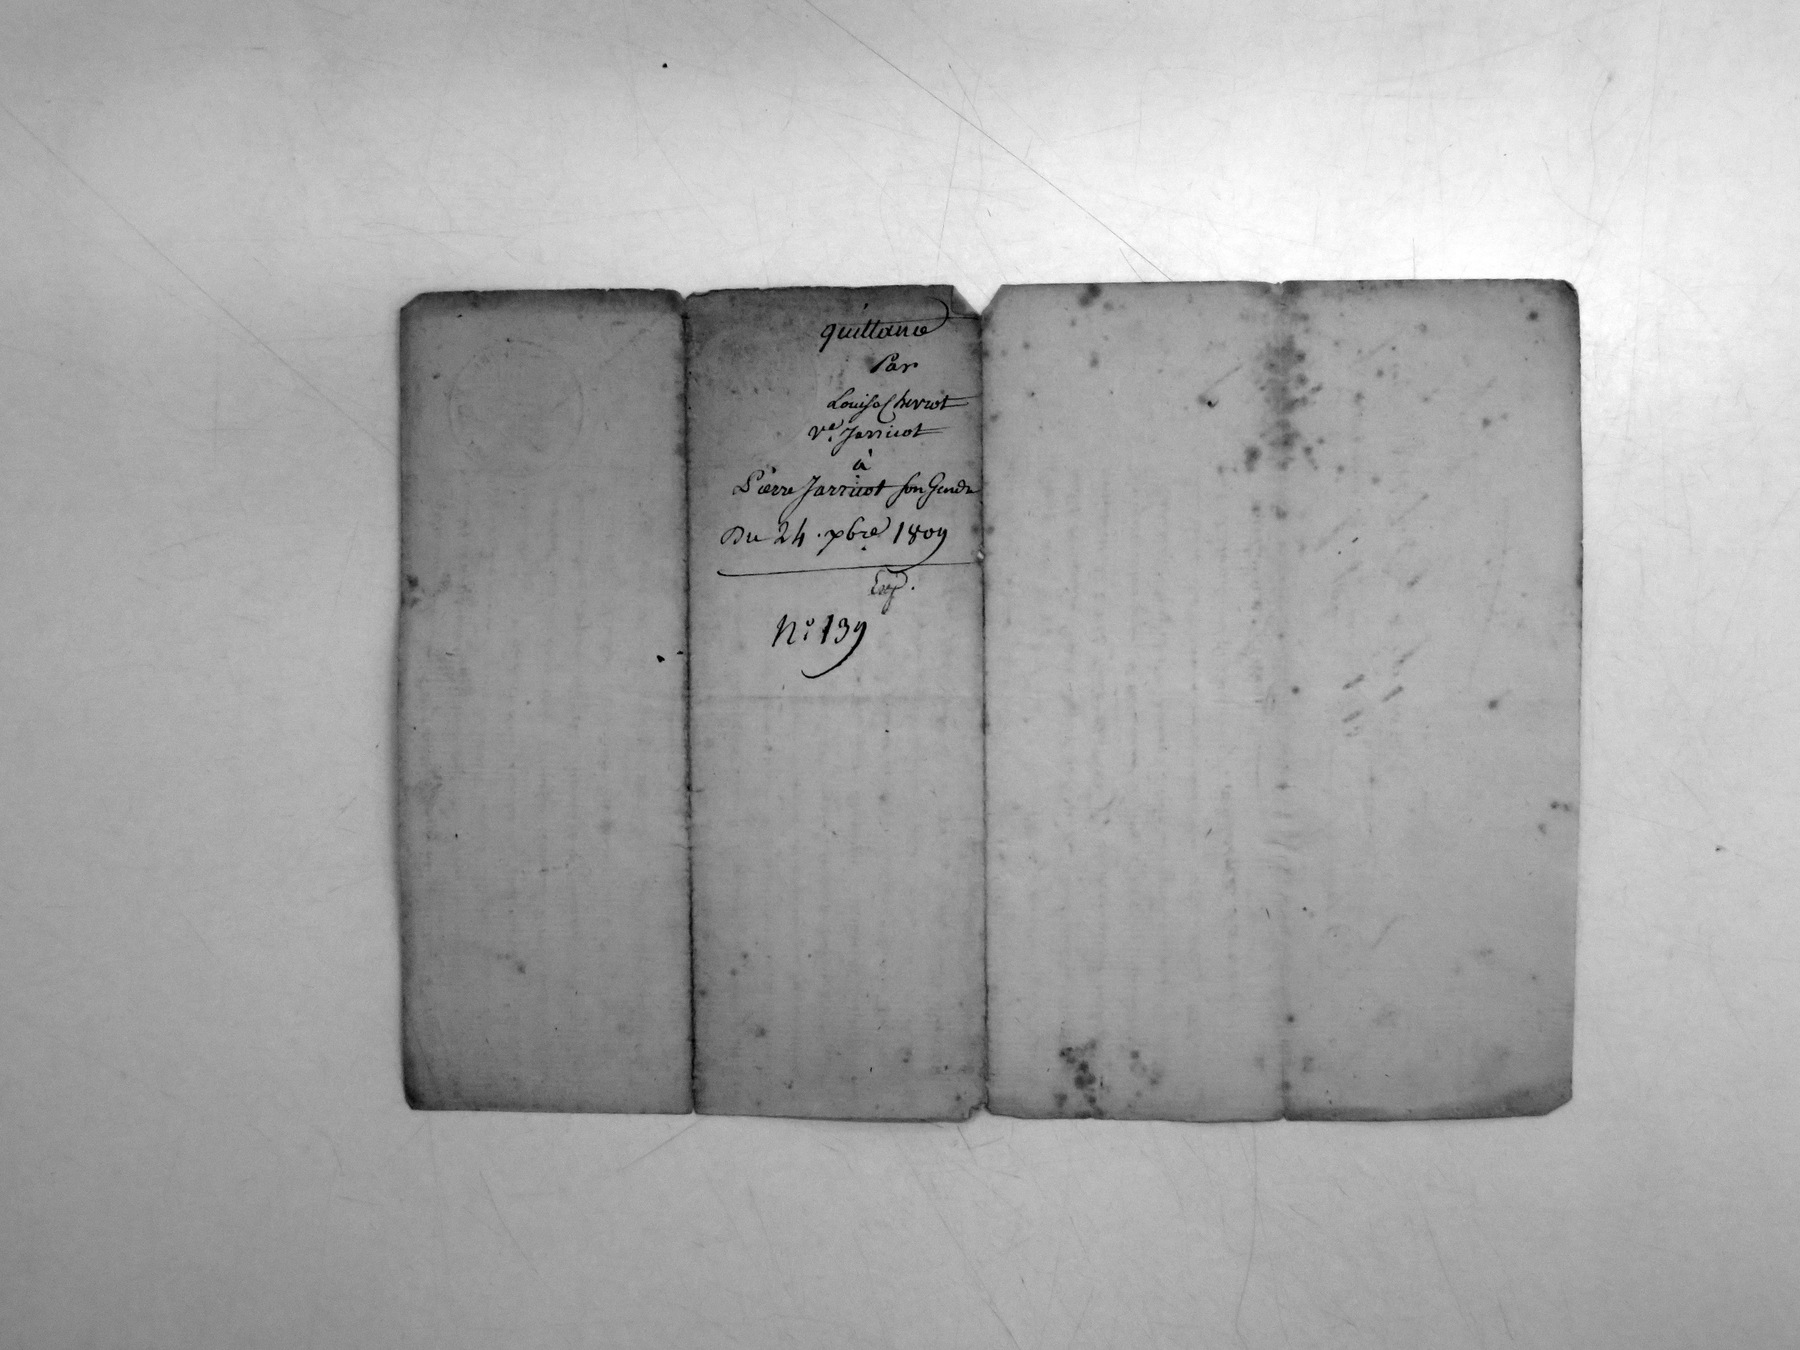 quittance
Par
Louise Chervot
Ve. Jarricot
à
Pierre Jarricot son Gendre
Du 24. xbre 1809
Exp.
No. 139